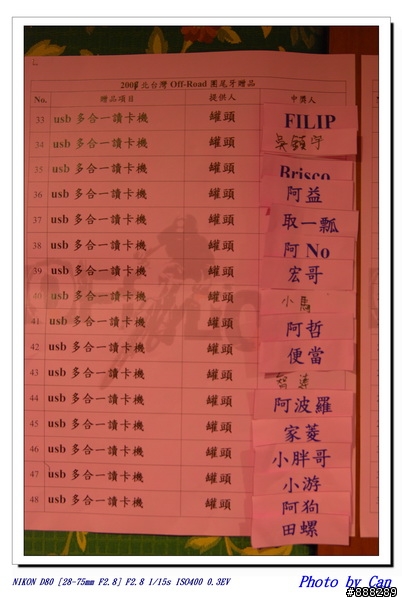 2008 北台灣 Off-Road 團尾牙贈品
No. 贈品項目 提供人 中獎人
33 usb 多合一讀卡機 罐頭 FILIP
34 usb 多合一讀卡機 罐頭
35 usb 多合一讀卡機 罐頭 Brisco
36 usb 多合一讀卡機 罐頭 阿益
37 usb 多合一讀卡機 罐頭 取一瓢
38 usb 多合一讀卡機 罐頭 阿 No
39 usb 多合一讀卡機 罐頭 宏哥
40 usb 多合一讀卡機 罐頭 小馬
41 usb 多合一讀卡機 罐頭 阿哲
42 usb 多合一讀卡機 罐頭 便當
43 usb 多合一讀卡機 罐頭
44 usb 多合一讀卡機 罐頭 阿波羅
45 usb 多合一讀卡機 罐頭 家菱
46 usb 多合一讀卡機 罐頭 小胖哥
47 usb 多合一讀卡機 罐頭 小游
48 usb 多合一讀卡機 罐頭 阿狗
田螺
NIKON D80 [28-75mm F2.8] F2.8 1/15s ISO400 0.3EV
Photo by Can
#888289